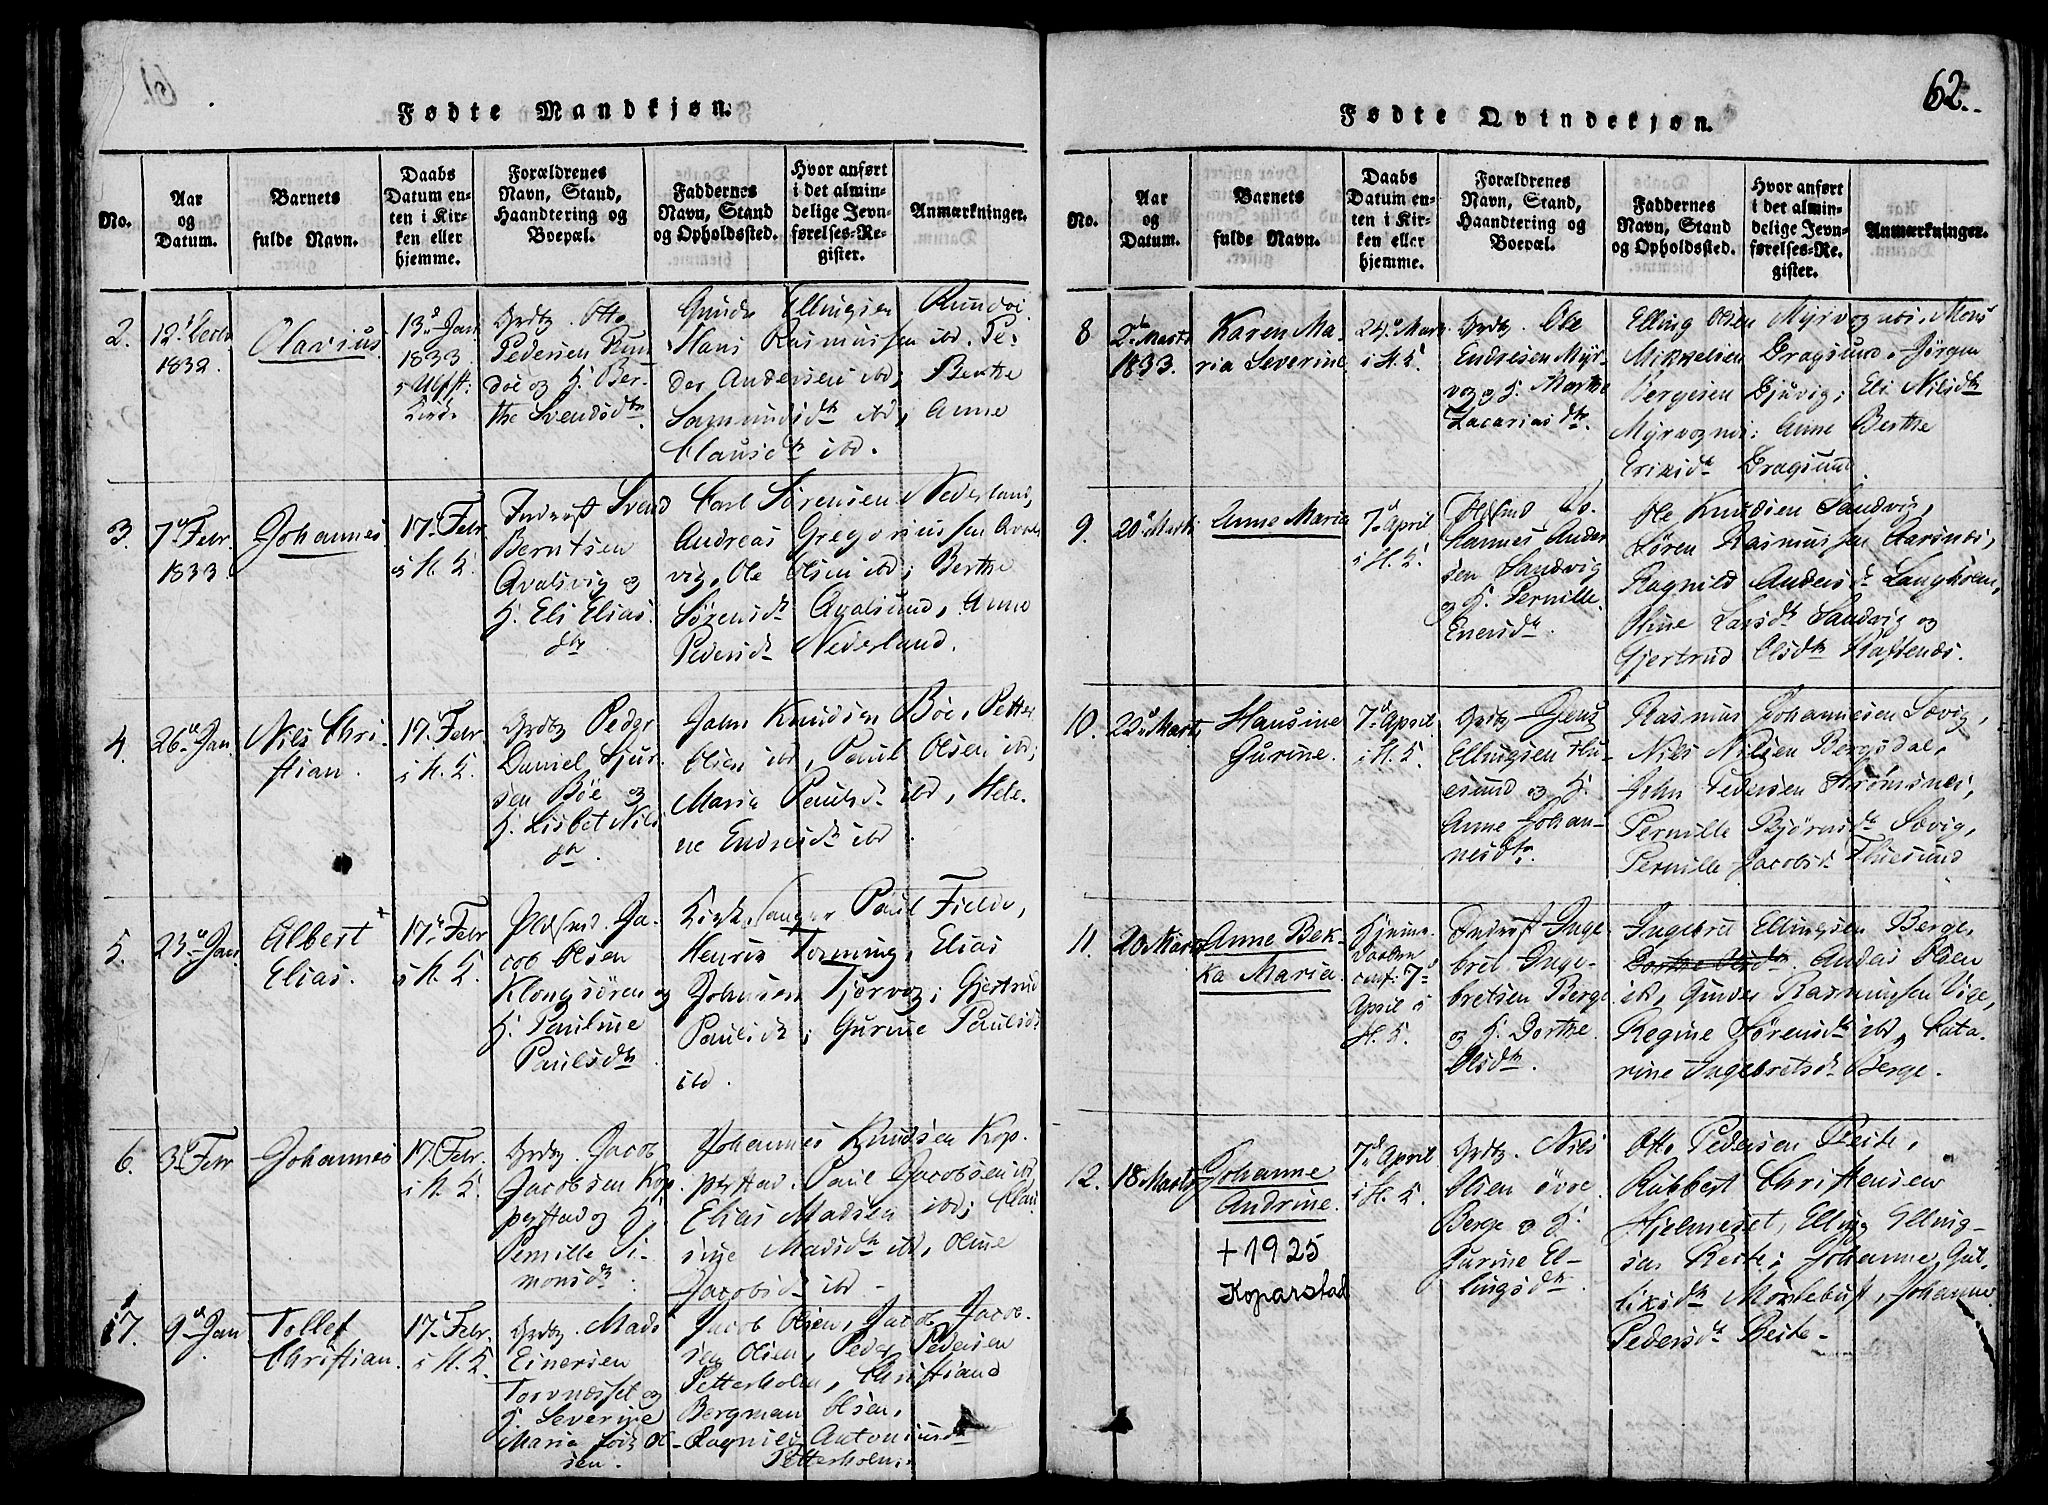 62.
Fødte Mandkjøn.
No.
Aar
og
Datum.
Barnets
fulde Navn.
Daabs
Datum en-
ten i Kir-
ken eller
hjemme.
Forældrenes
Navn, Stand,
Haandtering og
Boepæl.
Faddernes
Navn, Stand
og Opholdssted.
Hvor anført
i det almin-
delige Jevn-
førelses-Re-
gister.
Anmærkninger.
2.
1832.
Olavius
13d Jan
1833
Grdbr. Otto
Pedersen Run-
döe og H. Ber-
the Svendsdtr.
Gunder Ellingsen Rundöe
Hans Rasmussen ibd. Pe-
der Andersen ibd, Berthe
Sagmundsdtr ibd, Anne
Clausdtr ibd.
3.
7d Febr.
1833
Johannes
17d Febr.
i H. K.
Inderst Svend
Berntsen
Avalsvig og
H. Eli Elias
dtr
Carl Sörensen Nederland,
Andreas Gregoriussen Avals
vig, Ole Olsen ibd; Berthe
Sörensdtr Avalsund, Anne
Pedersdtr Nederland.
4.
26d Jan
Nils Chri-
stian.
17d Febr.
i H. K.
Grdbr Peder
Daniel Sjur-
sen Böe og
H. Lisbet Nils
dtr.
John Knudsen Böe, Petter
Olsen ibd, Paul Olsen ibd;
Maria Paulsdtr ibd, Hele-
ne Endresdtr ibd.
5.
23d Jan
Albert +
Elias.
17d Febr
i H. K.
Pladsmd. Ja-
cob Olsen
Klongsören og
H. Pauline
Paulsdtr
Kirkesanger Paul Fielde,
Henrik Torning, Elias
Johnsen Tjervog; Gjertrud
Paulsdtr, Gurine Paulsdtr
ibd.
6.
3d Febr
Johannes
17d Febr.
i H. K.
Grdbr. Jacob
Jacobsen Kop-
perstad og H.
Pernille Si-
monsdtr.
Johannes Knudsen Kop-
perstad. Paul Jacobsen ibd
Elias Madsen ibd; Clau
sine Madsdtr ibd, Oline
Jacobsdtr ibd -
7.
9d Jan
Tollef
Christian.
17d Febr.
i H. K.
Grdbr. Mads
Einersen
Torvnæsset og
H. Severine
Maria Ol-
sen.
Jacob Olsen, Jacob Jacob-
sen Olsen, Peder Pedersen
Petterholm, Christiand
Bergman Olsen,
Ragnild Antoniusdtr
Petterholm.
Fødte Qvindekjøn.
No.
Aar
og
Datum.
Barnets
fulde Navn.
Daabs
Datum en-
ten i Kir-
ken eller
hjemme.
Forældrenes
Navn, Stand,
Haandtering og
Boepæl.
Faddernes
Navn, Stand
og Opholdssted.
Hvor anført
i det almin-
delige Jevn-
førelses-Re-
gister.
Anmærkninger.
8
2den Marts
1833.
Karen Ma-
ria Severine
24d Mart.
i H. K.
Grdbr. Ole
Endresen Myr-
vog og H. Marthe
Zacariasdtr.
Elling Olsen Myrvognes, Mons
Mikkelsen Dragsund, Jörgen
Bergesen Djuvig; Eli Nilsdtr
Myrvognes; Anne Berthe
Eriksdtr Dragsund.
9.
20d Marts
Anne Maria
7d April
i H. K.
Pladsmd Jo-
hannes Ander
sen Sandvig
og H. Pernille
Enersdtr.
Ole Knudsen Sandvig,
Sören Rasmussen Aarsnes,
Ragnild Andersdtr Langholm,
Oline Larsdtr Sandvig og
Gjertrud Olsdtr Haftenes.
10.
22d Marts
Hansine
Gurine.
7d April
i H. K.
Grdbr Jens
Ellingsen Thu-
esund og H.
Anne Johan-
nesdtr.
Rasmus Johannesen Sævig,
Nils Nilsen Bergsdal,
John Pedersen Strömsnes,
Pernille Björnsdtr Sævig,
Pernille Jacobsdtr Thuesund
11.
20 Marts
Anne Bek-
ka Maria
Hjemme-
döbten
conf. 7d
April i
H. K.
Inderst Inge
bret Inge-
bretsen Berge
og H. Dorthe
Olsdtr.
Ingebret Ellingsen Berge,
Dorthe Olsdtr. Anders Olsen
ibd, Gunder Rasmussen Vige,
Regine Sörensdtr ibd, Cata-
rine Ingebretsdtr Berge.
12.
18 Marts
Johanne
Andrine.
+ 1925
Koparstad
7d April
i H. K.
Grdbr. Nils
Olsen övre
Berge og H.
Gurine El-
lingsdtr.
Otto Pedersen Reite,
Rubbert Christensen
Hjelmeset, Elling Elling-
sen Reite; Johanne Gul-
liksdtr Mörkebust, Johanne
Pedersdtr Reite -